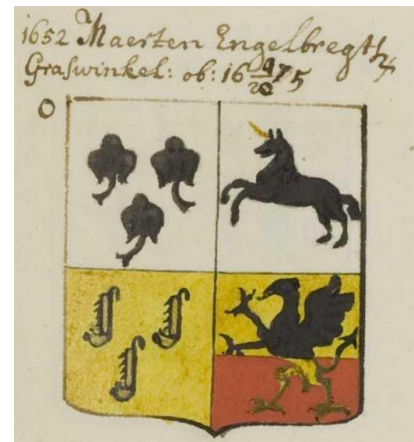 1652 Maerten Engelbregtz
Graswinkel: ob: 16 4/20 75
O